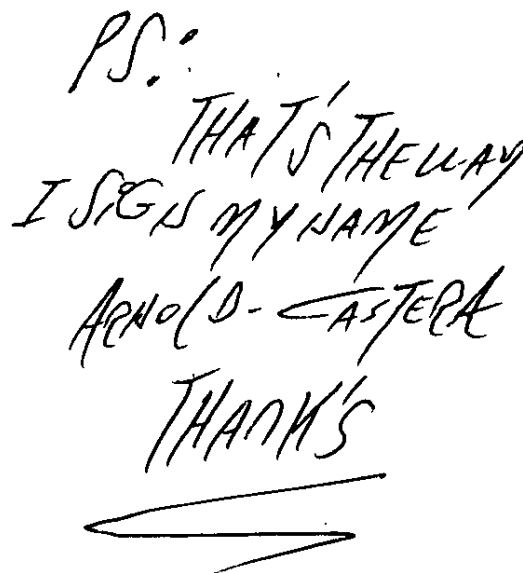 PS:
THAT'S THE WAY
I SIGN MY NAME
ARNOLD-CASTERA
THANK'S